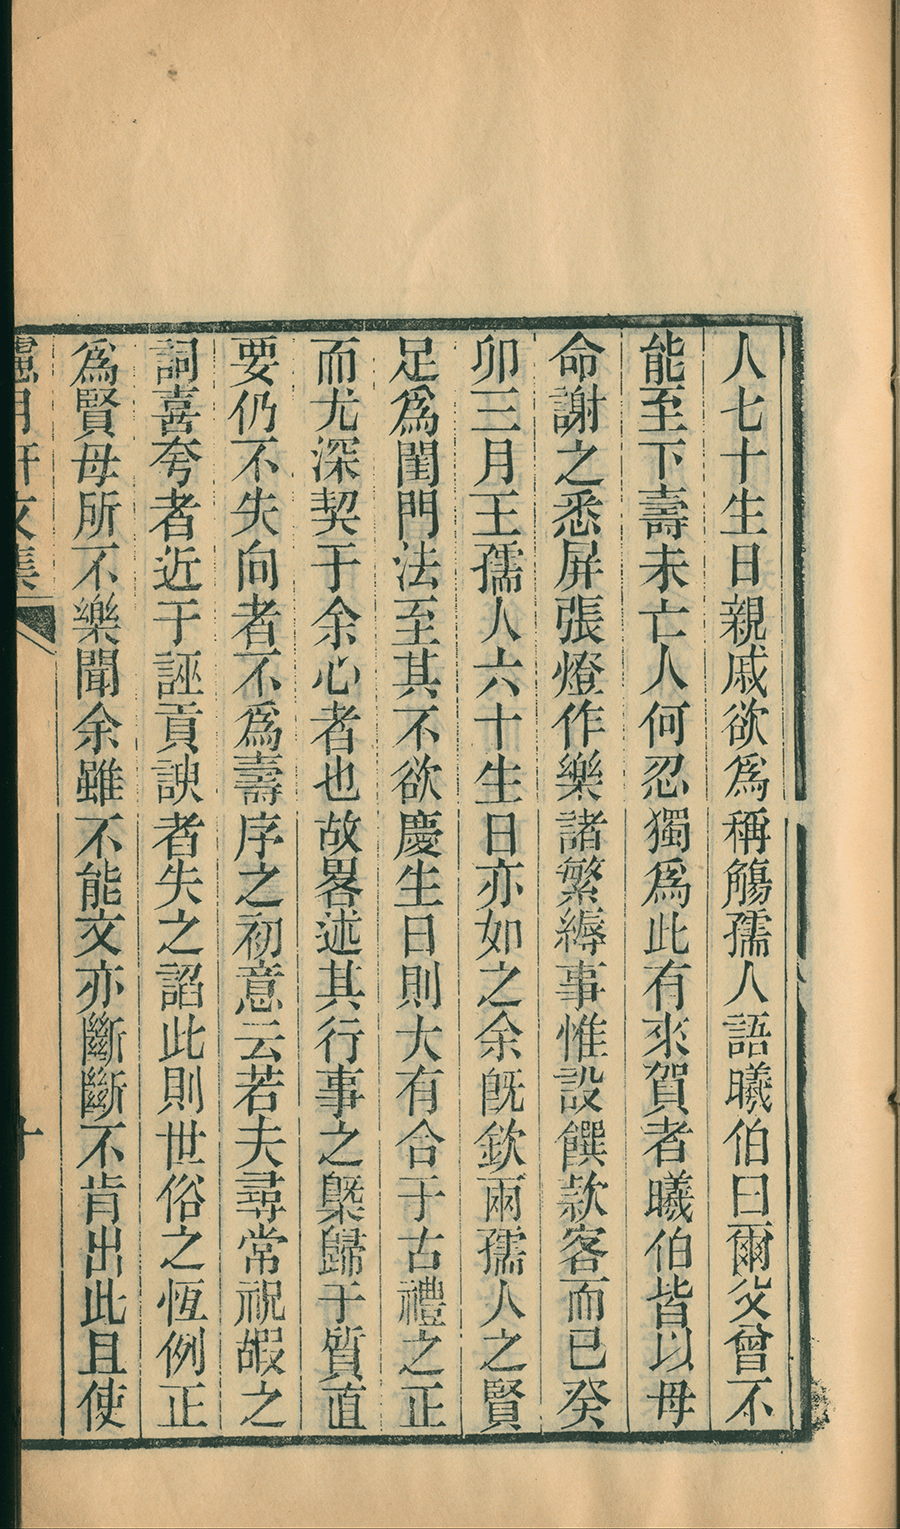 人七十生日親戚欲爲稱觴孺人語曦伯曰爾父曾不
能至下壽未亡人何忍獨爲此有來賀者曦伯皆以母
命謝之悉屏張燈作樂諸繁縟事惟設饌款客而已癸
卯三月王孺人六十生日亦如之余旣欽兩孺人之賢
足爲閨門法至其不欲慶生日則大有合于古禮之正
而尤深契于余心者也故畧述其行事之槩歸于質直
要仍不失向者不爲壽序之初意云若夫尋常祝嘏之
詞喜夸者近于誣貢諛者失之諂此則世俗之恆例正
爲賢母所不樂聞余雖不能文亦斷斷不肯出此且使
月軒文集
十